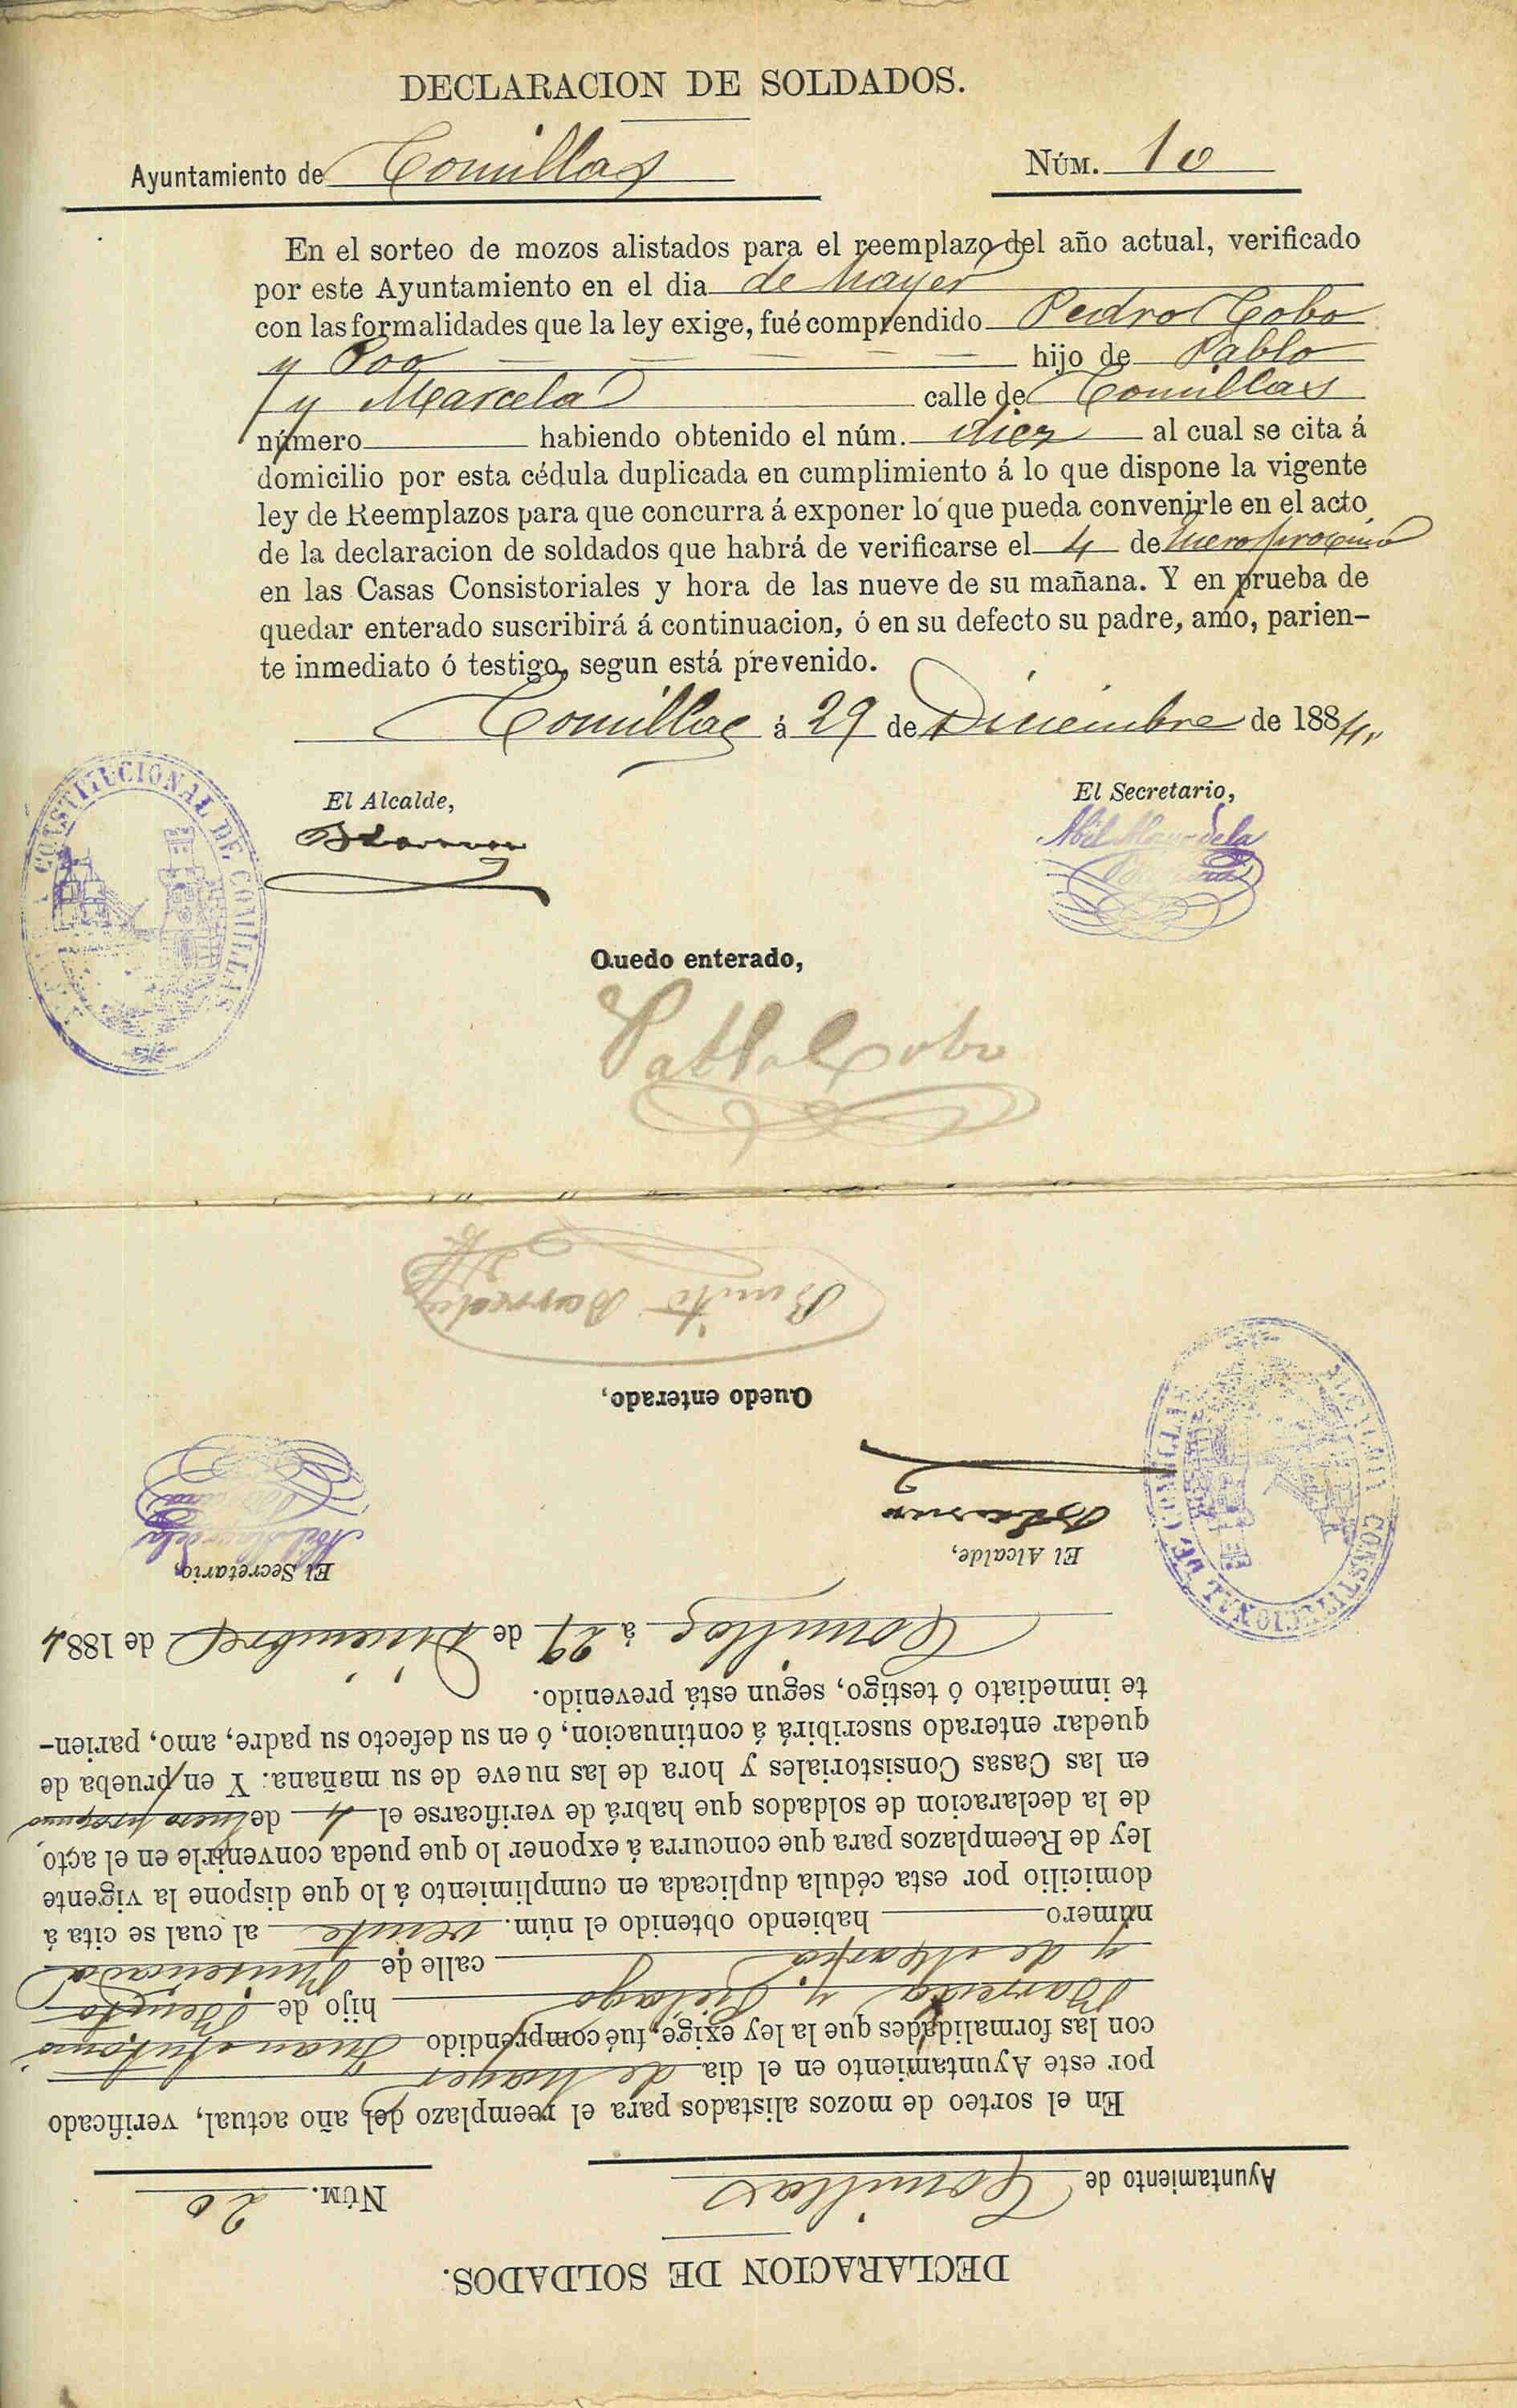 DECLARACION DE SOLDADOS.
Ayuntamiento de Comillas NÚM. 10
En el sorteo de mozos alistados para el reemplazo del año actual, verificado
por este Ayuntamiento en el dia de hayer
con las formalidades que la ley exige, fué comprendido Pedro Cobo
y Poo hijo de Pablo
y Marcela calle de Comillas
número habiendo obtenido el núm. diez al cual se cita á
domicilio por esta cédula duplicada en cumplimiento á lo que dispone la vigente
ley de Reemplazos para que concurra á exponer lo que pueda convenirle en el acto
de la declaracion de soldados que habrá de verificarse el 4 de Enero proximo
en las Casas Consistoriales y hora de las nueve de su mañana. Y en prueba de
quedar enterado suscribirá á continuacion, ó en su defecto su padre, amo, parien-
te inmediato ó testigo, segun está prevenido.
Comillas á 29 de Diciembre de 1884,
El Alcalde, El Secretario,
CONSTITUCIONAL DE COMILLAS
Quedo enterado,
Pablo Cobo
DECLARACION DE SOLDADOS.
Ayuntamiento de Comillas NÚM. 20
En el sorteo de mozos alistados para el reemplazo del año actual, verificado
por este Ayuntamiento en el dia de hayer
con las formalidades que la ley exige, fué comprendido Juan Antonio
Barreda y Pielago hijo de Benito
y de Maria calle de
número habiendo obtenido el núm. veinte al cual se cita á
domicilio por esta cédula duplicada en cumplimiento á lo que dispone la vigente
ley de Reemplazos para que concurra á exponer lo que pueda convenirle en el acto,
de la declaracion de soldados que habrá de verificarse el 4 de Enero proximo
en las Casas Consistoriales y hora de las nueve de su mañana. Y en prueba de
quedar enterado suscribirá á continuacion, ó en su defecto su padre, amo, parien-
te inmediato ó testigo, segun está prevenido.
Comillas á 29 de Diciembre de 1884
El Alcalde, El Secretario,
CONSTITUCIONAL DE COMILLAS
Quedo enterado,
Benito Barreda